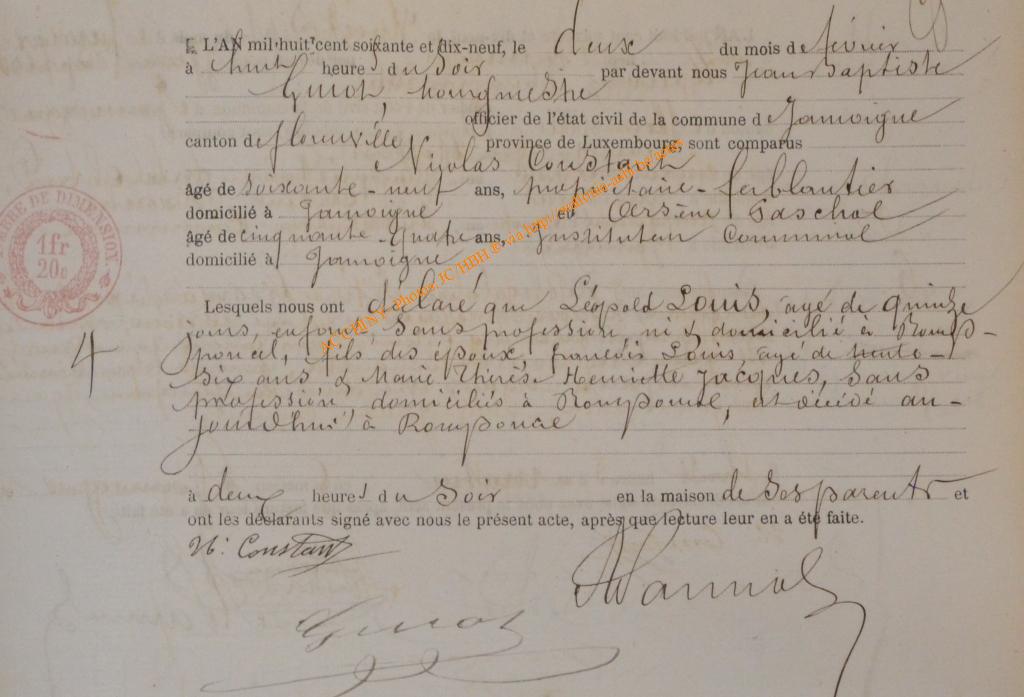 L'AN mil huit cent soixante et dix-neuf, le deux du mois de février
à huit heures du soir par devant nous Jean Baptiste
Guiot, bourgmestre
officier de l'état civil de la commune de Jamoigne
canton de florenville province de Luxembourg, sont comparus
Nicolas Constant
âgé de soixante-neuf ans, propriétaire-ferblantier
domicilié à Jamoigne et Arsène Paschal
âgé de cinquante-quatre ans, Instituteur Communal
domicilié à Jamoigne
Lesquels nous ont déclaré que Léopold Louis, âgé de quinze
jours, enfant, sans profession, né & domicilié à Romp-
poncel, fils des époux françois Louis, âgé de trente-
six ans & Marie Thérèse Henriette Jacques, sans
profession, domiciliés à Romponcel, est décédé au-
jourd'hui à Romponcel
à deux heures du soir en la maison de ses parents et
ont les déclarants signé avec nous le présent acte, après que lecture leur en a été faite.
N. Constant
Guiot
TIMBRE DE DIMENSION.
1fr
20c
4